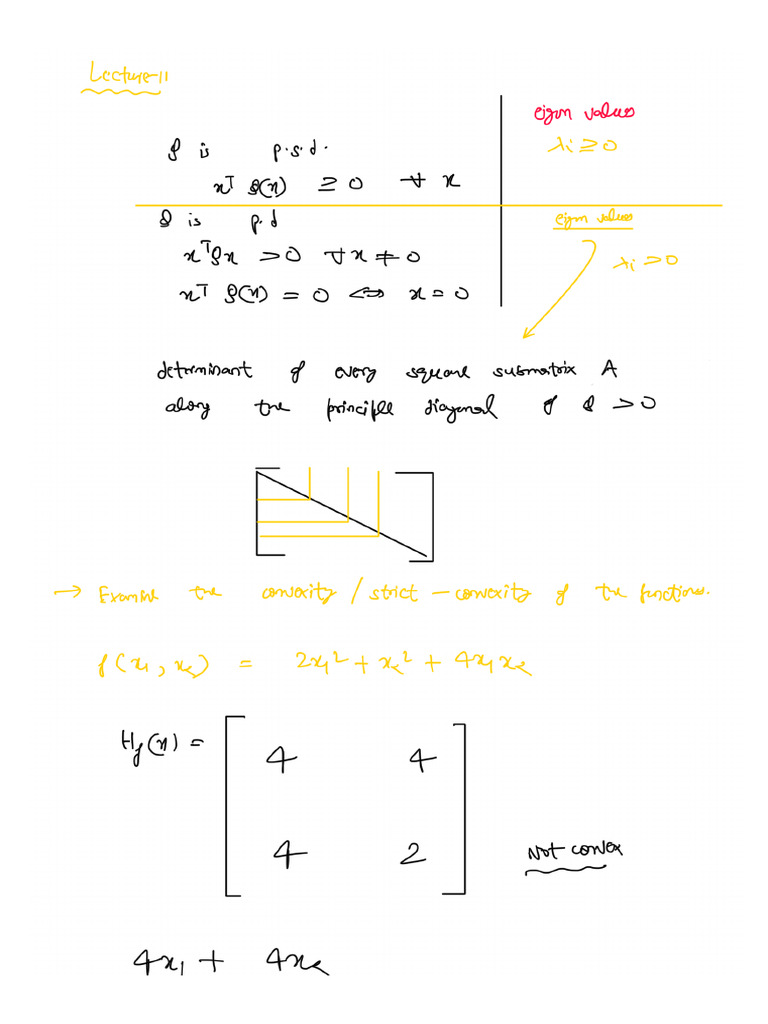 Lecture-11
eigen values
λi ≥ 0
Q is p.s.d.
xᵀ Q(x) ≥ 0 ∀ x
Q is p.d
eigen values
xᵀQx > 0 ∀ x ≠ 0
λi > 0
xᵀ Q(x) = 0 ⇔ x = 0
determinant of every square submatrix A
along the principle diagonal of Q > 0
→ Examine the convexity / strict - convexity of the functions.
f(x₁, x₂) = 2x₁² + x₂² + 4x₁x₂
Hf(x) =
4 4
4 2
Not convex
4x₁ + 4x₂